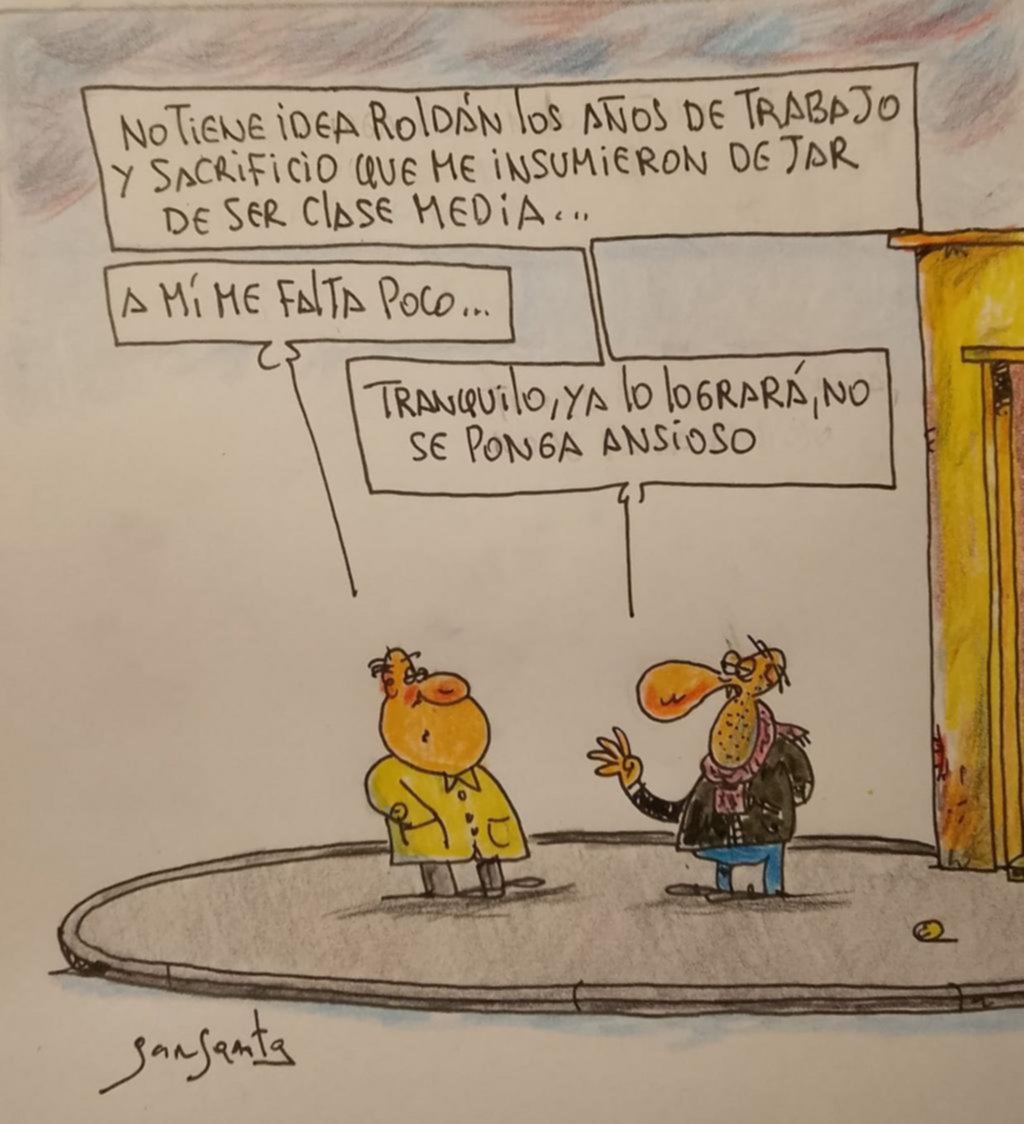 NO TIENE IDEA ROLDÁN LOS AÑOS DE TRABAJO
Y SACRIFICIO QUE ME INSUMIERON DEJAR
DE SER CLASE MEDIA...
A MÍ ME FALTA POCO...
TRANQUILO, YA LO LOGRARÁ, NO
SE PONGA ANSIOSO
garganta